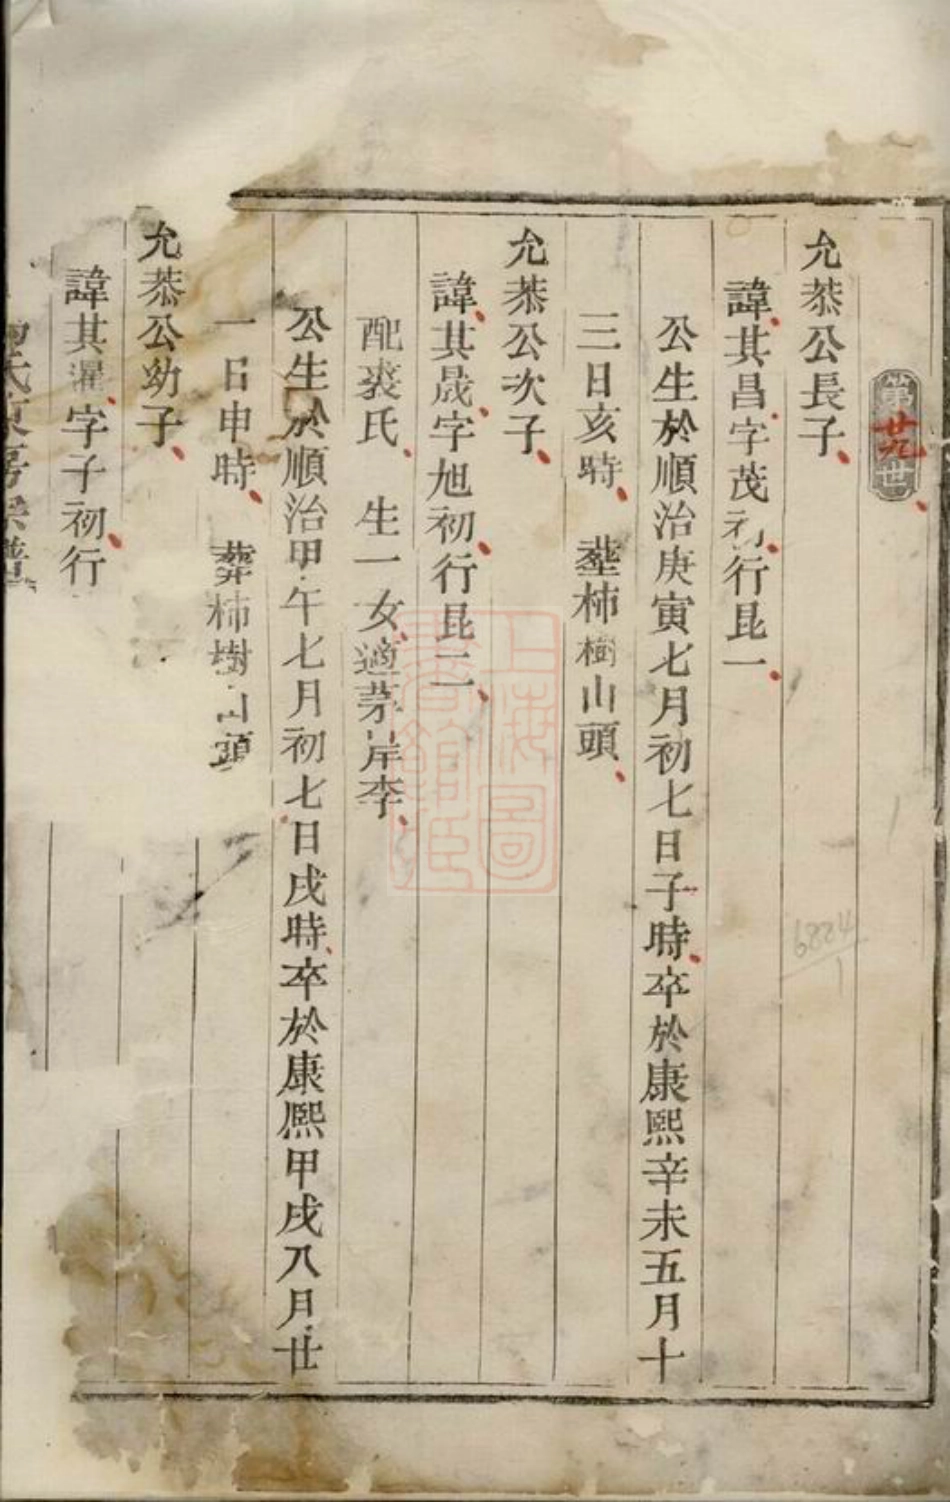 第廿九世
允恭公長子
諱其昌字茂初行昆一
公生於順治庚寅七月初七日子時卒於康熙辛未五月十
三日亥時　塟柿樹山頭
允恭公次子
諱其晟字旭初行昆二
配裘氏　生一女適茅岸李
公生於順治甲午七月初七日戌時卒於康熙甲戌八月廿
一日申時　葬柿樹山頭
允恭公幼子
諱其濯字子初行
氏東房宗譜
上海圖書館藏
6884
1